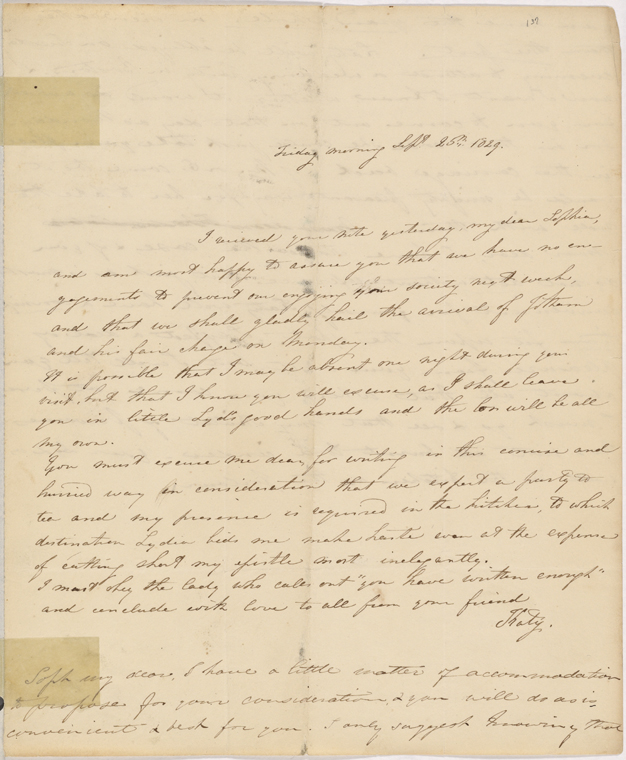 137
Friday morning Septr 25th 1829.
I received your note yesterday, my dear Sophia,
and am most happy to assure you that we have no en-
gagements to prevent our enjoying your society next week,
and that we shall gladly hail the arrival of Jotham
and his fair charge on Monday.
It is possible that I may be absent one night during your
visit, but that I know you will excuse, as I shall leave
you in little Lyd's good hands and the loss will be all
my own.
You must excuse me dear, for writing in this concise and
hurried way in consideration that we expect a party to
tea and my presence is required in the kitchen, to which
destination Lydia bids me make haste even at the expense
of cutting short my epistle most inelegantly.
I must obey the lady who calls out "you have written enough"
and conclude with love to all from your friend
Katy.
Soph my dear, I have a little matter of accommodation
to propose for your consideration, & you will do as is
convenient & best for you. I only suggest knowing that